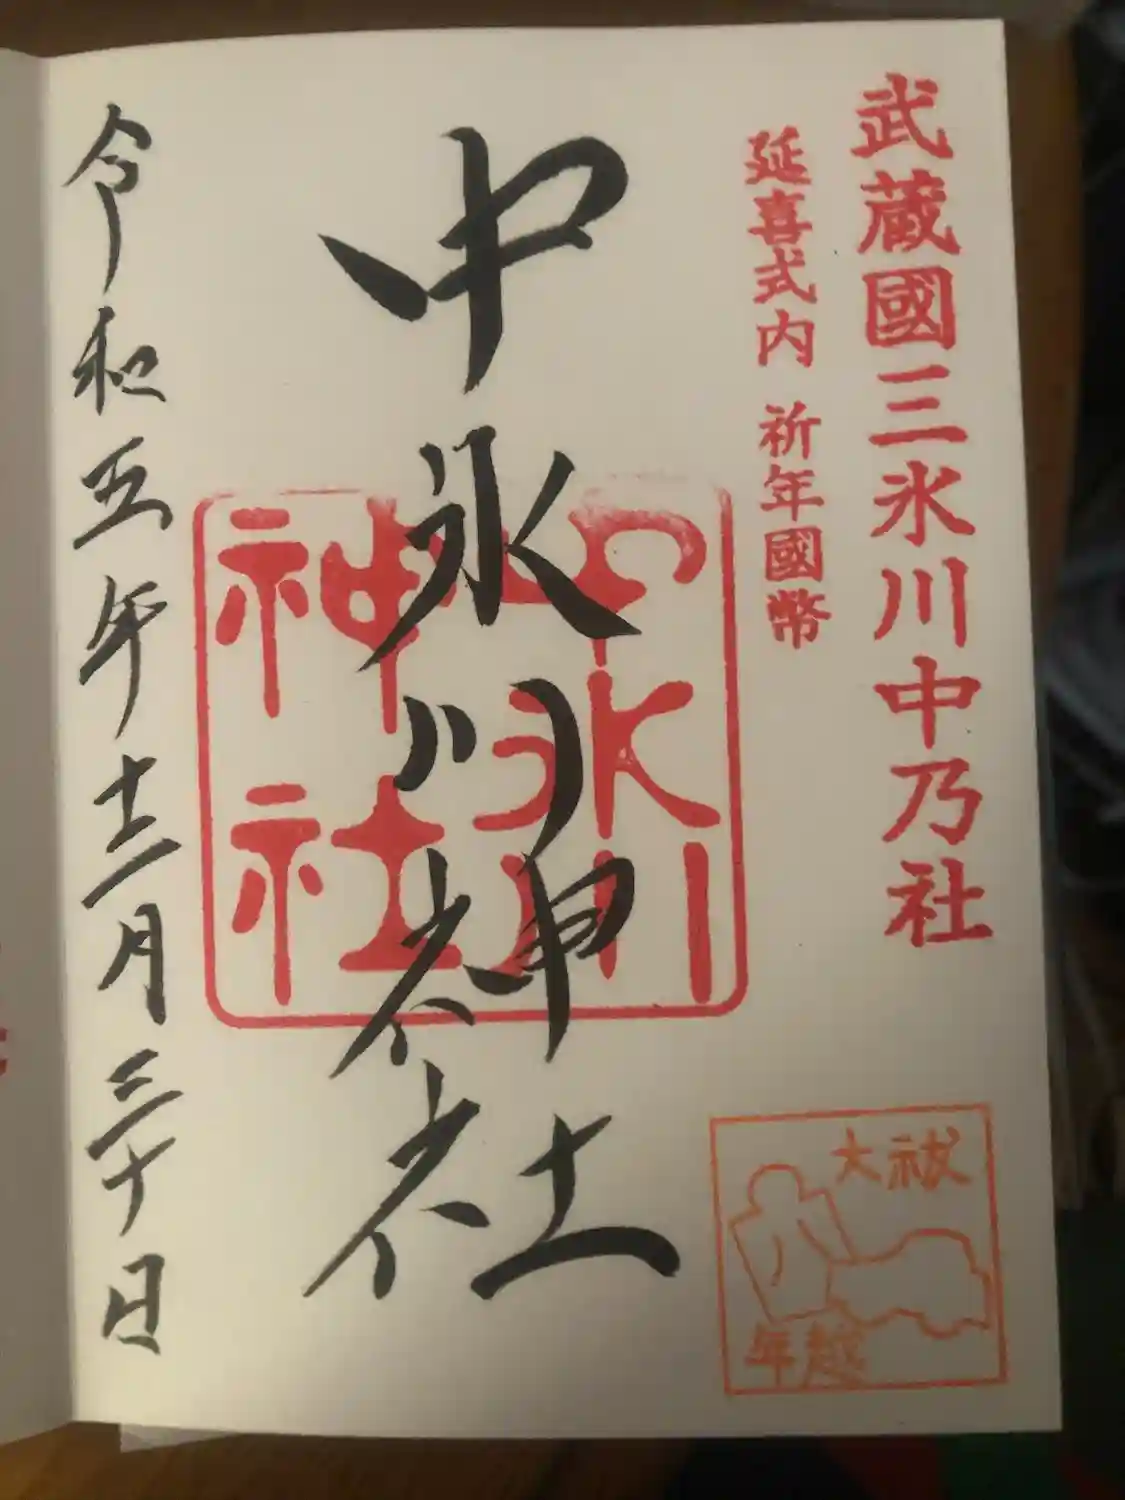 武蔵國三氷川中乃社
延喜式内 祈年國幣
中氷川神社
中氷川
神社
令和五年十二月三十日
大祓
年越